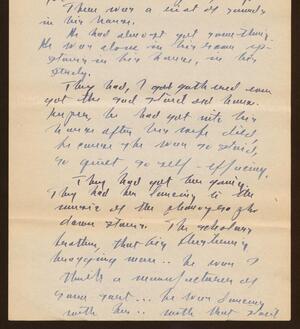 There was a kind of
in his house.
He had almost got something.
He was alone in his room up-
stairs in his house, in his
study.
They had, I got gathered even
got the sad staid old house-
keeper, he had got into his
house after his wife died,
because she was so staid,
so quiet so self-effacing.
They had got her going.
They had her dancing to the
music of the phonograph
down stairs. The scholarly
brother, that big
man.. he was I
think a manufacturer of
some sort... he was dancing
with her.. with that staid